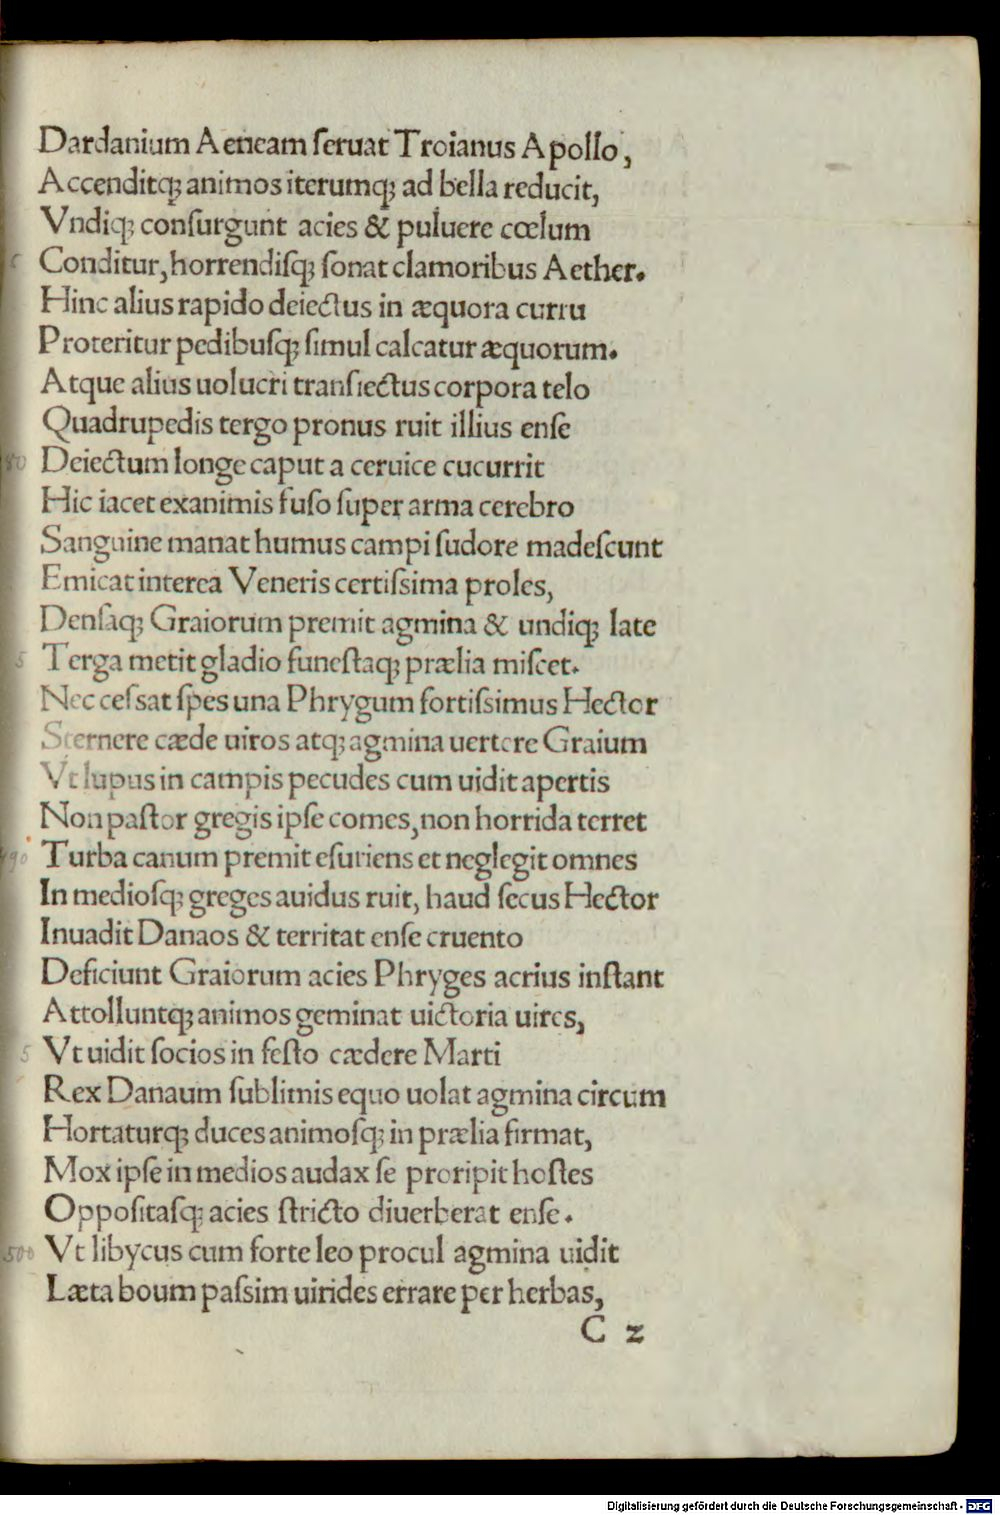 Dardanium Aeneam ſeruat Troianus Apollo,
Accenditq; animos iterumq; ad bella reducit,
Vndiq; conſurgunt acies & puluere cœlum
Conditur, horrendiſq; ſonat clamoribus Aether.
Hinc alius rapido deiectus in æquora curru
Proteritur pedibuſq; ſimul calcatur æquorum.
Atque alius uolucri tranſiectus corpora telo
Quadrupedis tergo pronus ruit illius enſe
80 Deiectum longe caput a ceruice cucurrit
Hic iacet exanimis fuſo ſuper arma cerebro
Sanguine manat humus campi ſudore madeſcunt
Emicat interea Veneris certiſsima proles,
Denſaq; Graiorum premit agmina & undiq; late
5 Terga metit gladio funeſtaq; prælia miſcet.
Nec ceſsat ſpes una Phrygum fortiſsimus Hector
Sternere cæde uiros atq; agmina uertere Graium
Vt lupus in campis pecudes cum uidit apertis
Non paſtor gregis ipſe comes, non horrida terret
490 Turba canum premit eſuriens et neglegit omnes
In medioſq; greges auidus ruit, haud ſecus Hector
Inuadit Danaos & territat enſe cruento
Deficiunt Graiorum acies Phryges acrius inſtant
Attolluntq; animos geminat uictoria uires,
5 Vt uidit ſocios in feſto cædere Marti
Rex Danaum ſublimis equo uolat agmina circum
Hortaturq; duces animoſq; in prælia firmat,
Mox ipſe in medios audax ſe proripit hoſtes
Oppoſitaſq; acies ſtricto diuerberat enſe.
500 Vt libycus cum forte leo procul agmina uidit
Læta boum paſsim uirides errare per herbas,
C 2
Digitalisierung gefördert durch die Deutsche Forschungsgemeinschaft - DFG